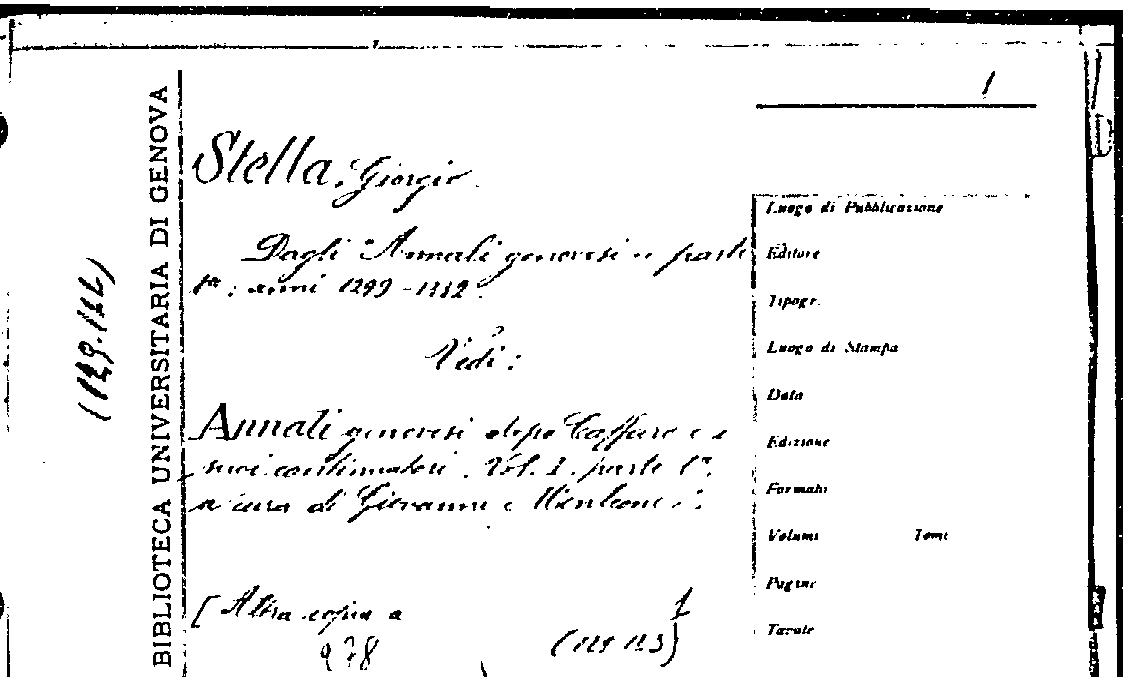 1
Stella, Giorgio
Dagli "Annali genovesi" parte
1ª: anni 1299-1332.
Vedi:
Annali genovesi dopo Caffaro e i
suoi continuatori. Vol. I. parte 1ª.
a cura di Giovanni Monleone.
[Altra copia a 1
978
BIBLIOTECA UNIVERSITARIA DI GENOVA
Luogo di Pubblicazione
Editore
Tipogr.
Luogo di Stampa
Data
Edizione
Formato
Volumi Tomi
Pagine
Tavole